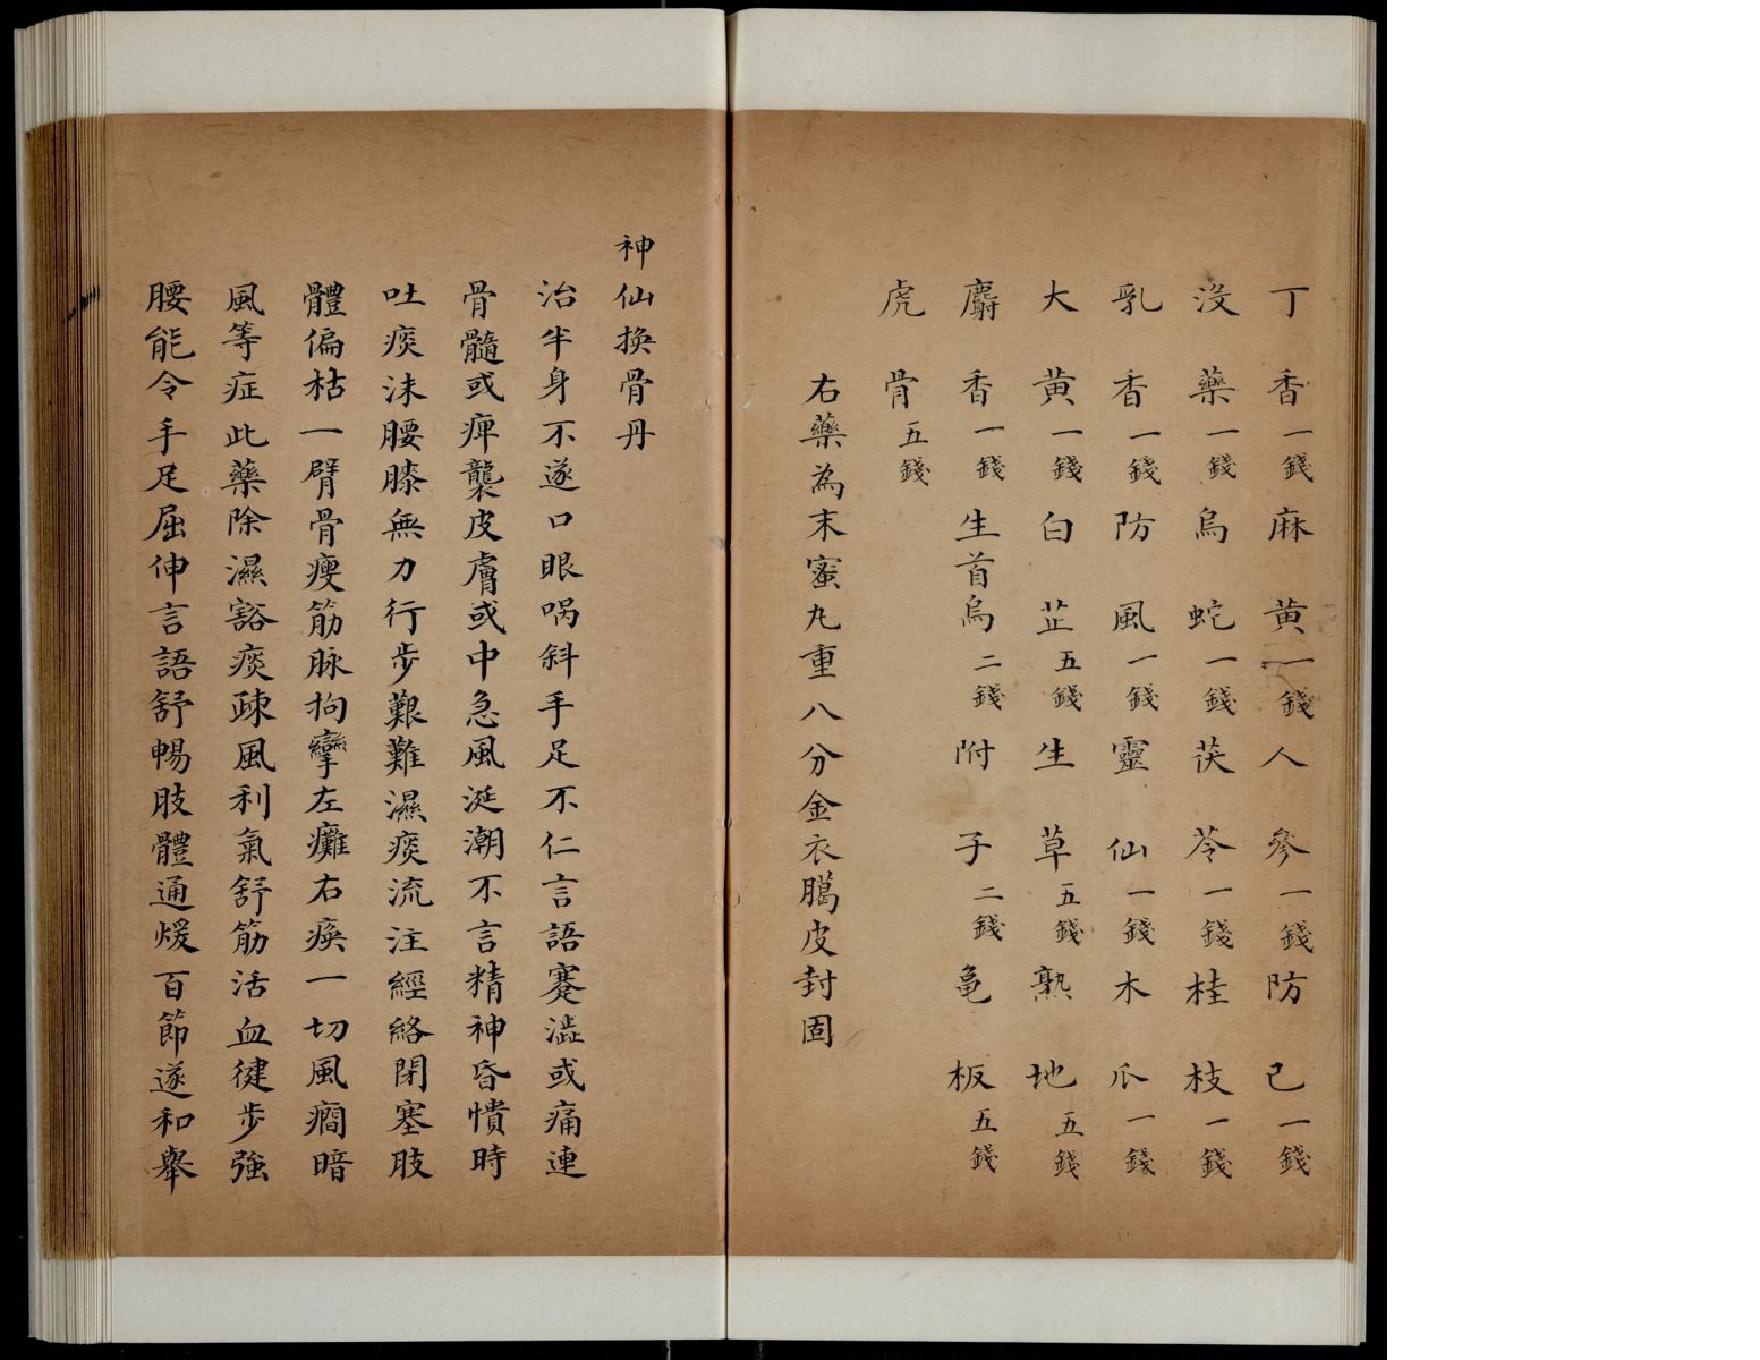 丁香一錢麻黄一錢人參一錢防己一錢
沒藥一錢烏蛇一錢茯苓一錢桂枝一錢
乳香一錢防風一錢靈仙一錢木瓜一錢
大黄一錢白芷五錢生草五錢熟地五錢
麝香一錢生首烏二錢附子二錢龜板五錢
虎骨五錢
右藥為末蜜丸重八分金衣臈皮封固
神仙換骨丹
治半身不遂口眼喎斜手足不仁言語蹇澁或痛連
骨髓或痺襲皮膚或中急風涎潮不言精神昏憒時
吐痰沫腰膝無力行步艱難濕痰流注經絡閉塞肢
體偏枯一臂骨瘦筋脉拘攣左癱右瘓一切風癇暗
風等症此藥除濕豁痰疎風利氣舒筋活血健步強
腰能令手足屈伸言語舒暢肢體通煖百節遂和舉